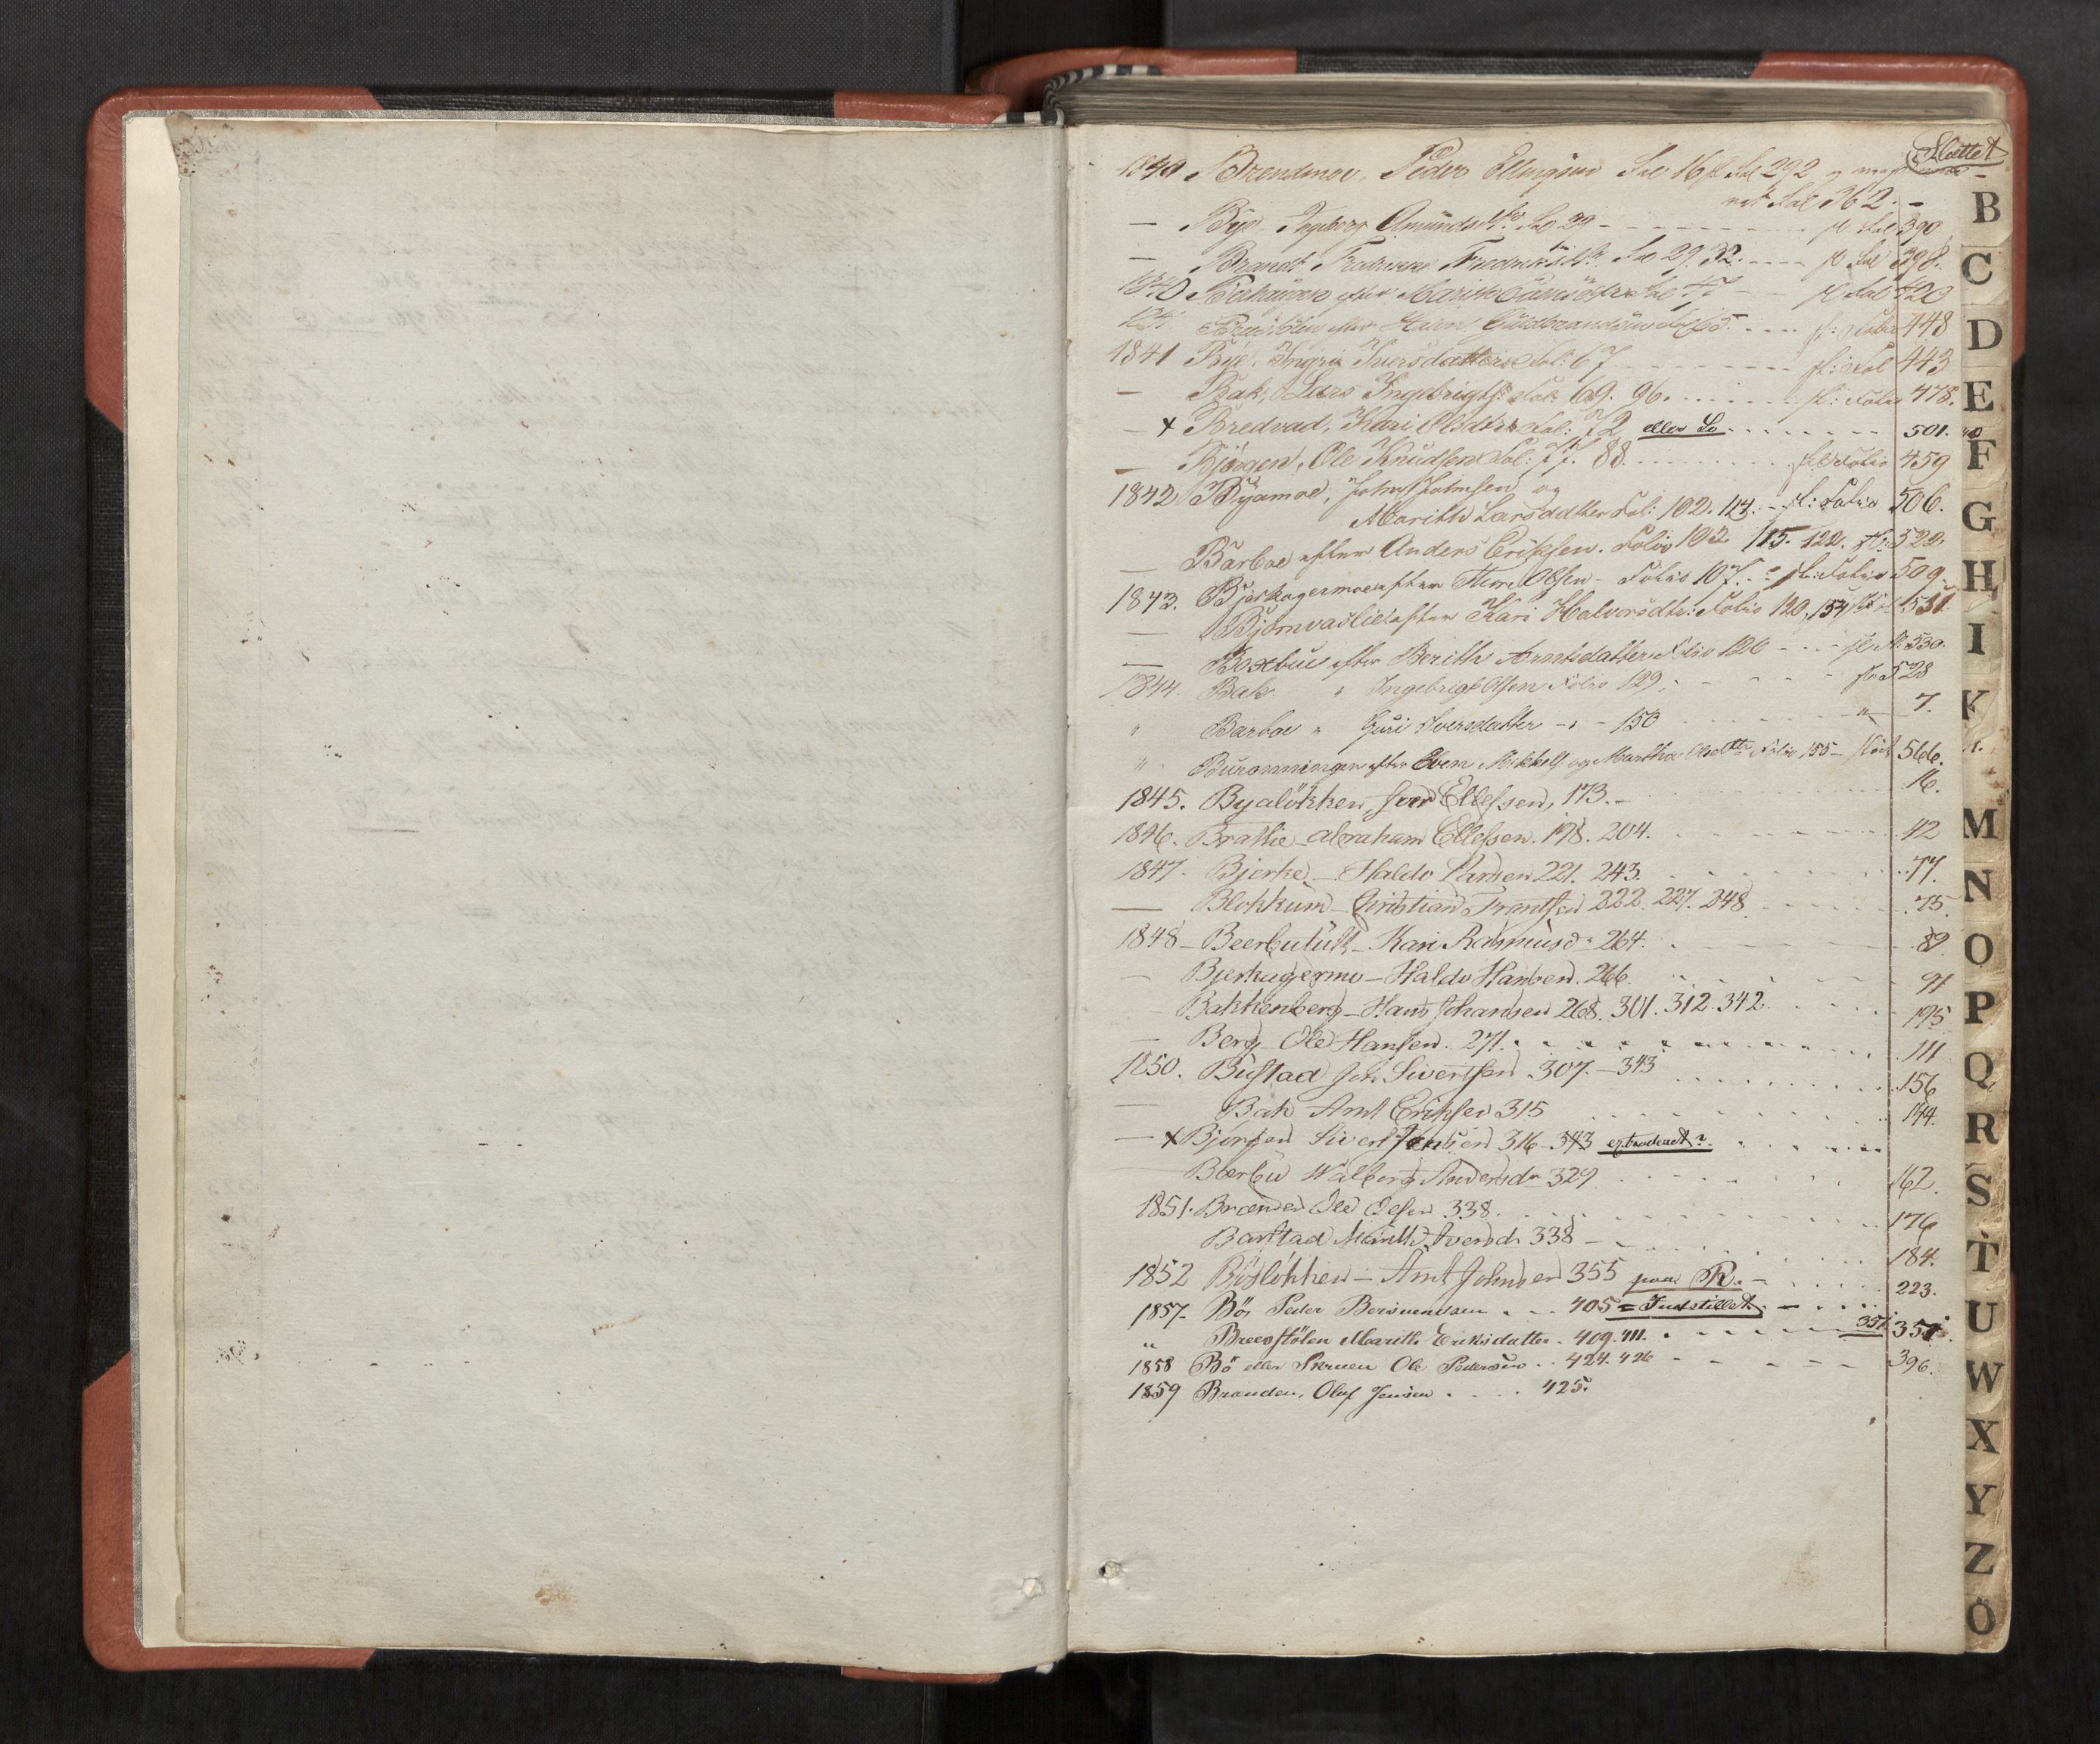 Sluttet
1840 Brendmoe, Peder Ellingsen Fol 16 sl Fol 292 og
Fol 362. -
— Bye, Ingeborg Amundsdtr Fol 29 - - - - sl Fol 390
— Brandt Fredriksdtr. Fol 29. 32. - - - sl Fol 398.
1840 efter Marith Fol 47 sl Fol 420
efter Guldbrandsen Fol 65. . . . . sl: Folio 448
1841 Bye, Ingri Iversdatter Fol: 67 sl: Fol 443
— Bak, Lars Ingebrigts: Fol: 69. 96. . . . . sl: Folio 478.
— x Bredvad, Kari Olsdtr Fol: 72 eller So . . . . . 501.
— Bjørgen, Ole Knudsen Fol: 77. 88. . . . . . sl: Folio 459
1842 Byamoe, John Johnsen og
Marith Larsdatter Fol: 102. 114. - sl: Folio 506.
— Barboe efter Anders Eriksen. Folio 102. 115. 122. sl: 522
1843. Bjerkagermoe efter Thore Olsen - Folio 107. - sl: Folio 509.
— Bjørnvaslie efter Kari Halvorsdtr: Folio 120, 154 551.
— Boxbue efter Berith Arntsdatter Folio 126 - - - sl 530.
1844. Bak " Ingebrigt Olsen Folio 129. - - - - 528
" Barboe " Guri Iversdatter - " - 150 - - - " 7.
" Burønningen efter Even Mikkels. og Martha Olsdttr Folio 155 - 566.
1845. Byaløkken, Iver Ellefsen, 173. - 16.
1846. Bratlie - Abraham Ellefsen. 198. 204. 42
1847. Bjerke - Haldo Hansen 221. 243. 77.
— Blokkum - Christian Frantsen 222. 227. 248. 75.
1848 - Beerbuhult - Kari Rasmusd: 264. 82.
— Bjerkagermo - Haldo Hansen. 266. 91
Bakkenberg - Hans Johansen 268. 301. 312. 342. 195
— Berg - Ole Hansen. 271. 111
1850. Bustad Joh Sivertsen. 307. - 343 156
— Bak Arnt Eriksen 315 144.
— x Bjørgen Sivert Jensen 316 - 343 extraderet?
Bærbu Walborg Andersdr 329 162.
1851. Brænden Ole Olsen 338. 176
Barstad Marith Iversd. 338 - 184.
1852 Bøsløkken - Arnt Johnsen 355 paa R. - 223.
1857 - Bø, Peder Bersvendsen . . . 405 = Indstillet. -
" Breesstølen Marith Eriksdatter. 409. 411. 357 357.
1858 Bø eller Skruen Ole Pedersen . . 424. 426 396.
1859 Brænden, Oluf Jensen . . . . 425.
B
C
D
E
F
G
H
I
K
M
N
O
P
Q
R
S
T
U
W
X
Y
Z
Ö